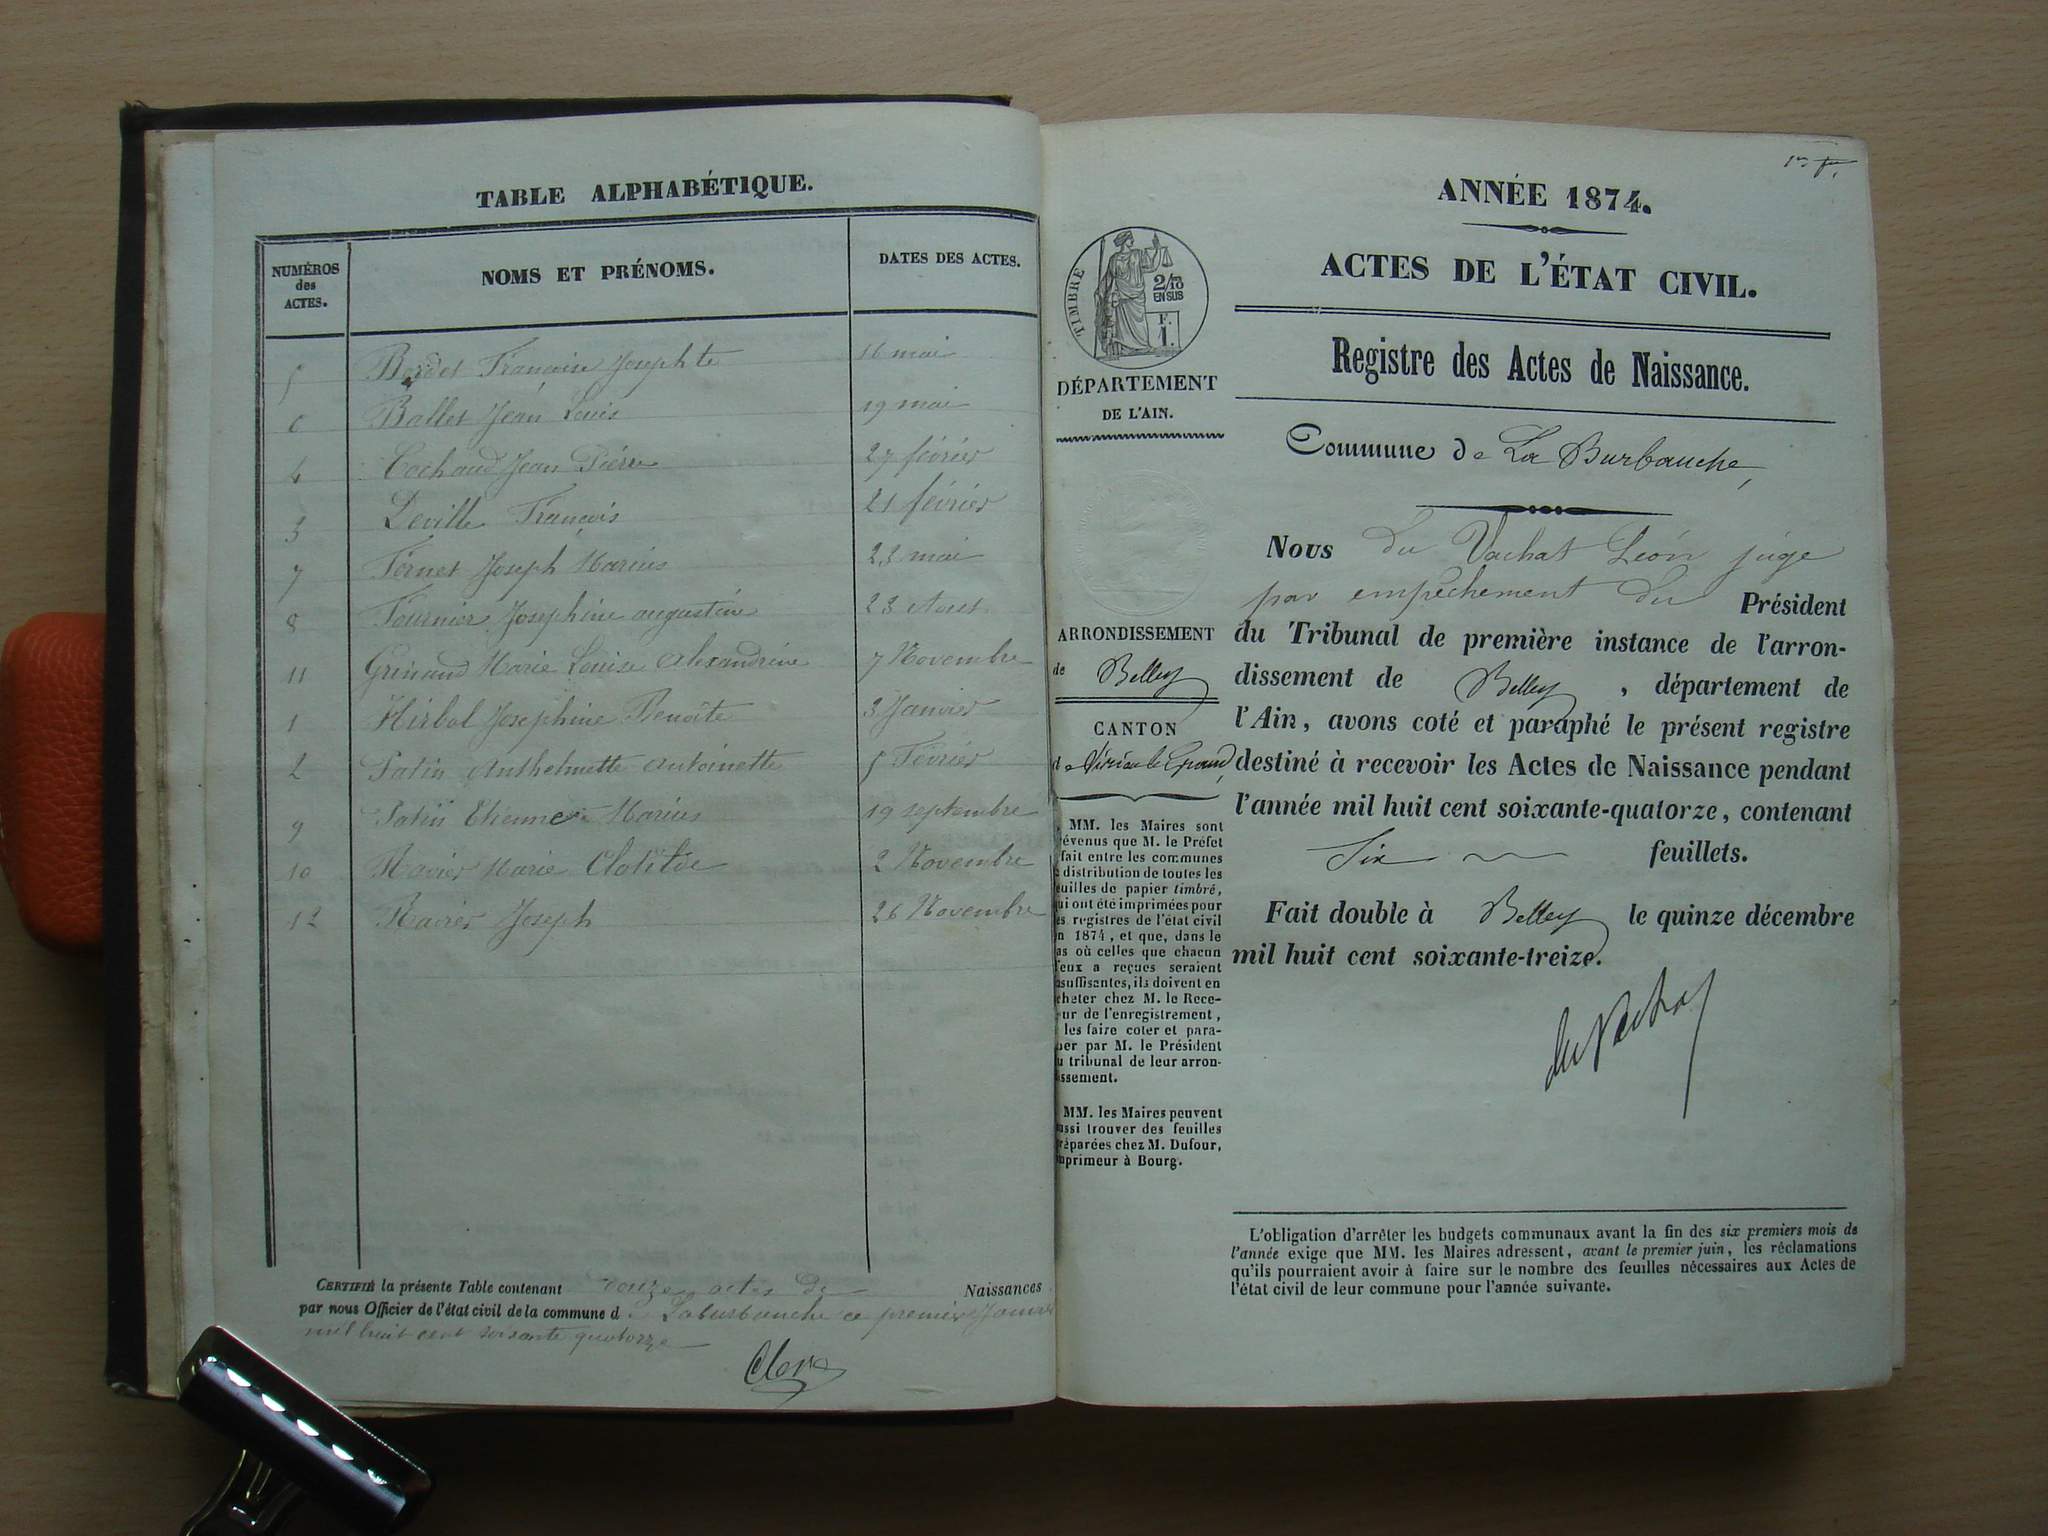 TABLE ALPHABÉTIQUE.
NUMÉROS des ACTES. NOMS ET PRÉNOMS. DATES DES ACTES.
5 Bordet Françoise Josephte 16 mai
6 Ballet Jean Louis 19 mai
4 Cochaud Jean Piérre 27 février
3 Deville François 21 février
7 Fernet Joseph Marius 23 mai
8 Fournier Josephine augustine 23 Aout
11 Marie Louise Alexandrine 7 Novembre
1 Josephine Benoite 3 Janvier
2 Anthelmette Antoinette 5 Février
9 Etienne Marius 19 septembre
10 Ravier Marie Clotilde 2 Novembre
12 Ravier Joseph 26 Novembre
CERTIFIÉ la présente Table contenant douze actes de Naissances
par nous Officier de l'état civil de la commune d Laburbanche ce premier Janvier
mil huit cent soixante quatorze
1er
ANNÉE 1874.
ACTES DE L'ÉTAT CIVIL.
Registre des Actes de Naissance.
Commune de La Burbanche
TIMBRE
2/10
EN SUS
F.
1.
DÉPARTEMENT
DE L'AIN.
ARRONDISSEMENT
de Belley
CANTON
de Virieu le Grand
MM. les Maires sont
évenus que M. le Préfet
fait entre les communes
distribution de toutes les
euilles de papier timbré,
ui ont été imprimées pour
es registres de l'état civil
n 1874, et que, dans le
as où celles que chacun
eux a reçues seraient
nsuffisantes, ils doivent en
cheter chez M. le Rece-
ur de l'enregistrement,
les faire coter et para-
her par M. le Président
u tribunal de leur arron-
issement.
MM. les Maires peuvent
ussi trouver des feuilles
réparées chez M. Dufour,
mprimeur à Bourg.
Nous du Vachat Léon juge
par empêchement du Président
du Tribunal de première instance de l'arron-
dissement de Belley, département de
l'Ain, avons coté et paraphé le présent registre
destiné à recevoir les Actes de Naissance pendant
l'année mil huit cent soixante-quatorze, contenant
Six feuillets.
Fait double à Belley le quinze décembre
mil huit cent soixante-treize.
du Vachat
L'obligation d'arrêter les budgets communaux avant la fin des six premiers mois de
l'année exige que MM. les Maires adressent, avant le premier juin, les réclamations
qu'ils pourraient avoir à faire sur le nombre des feuilles nécessaires aux Actes de
l'état civil de leur commune pour l'année suivante.